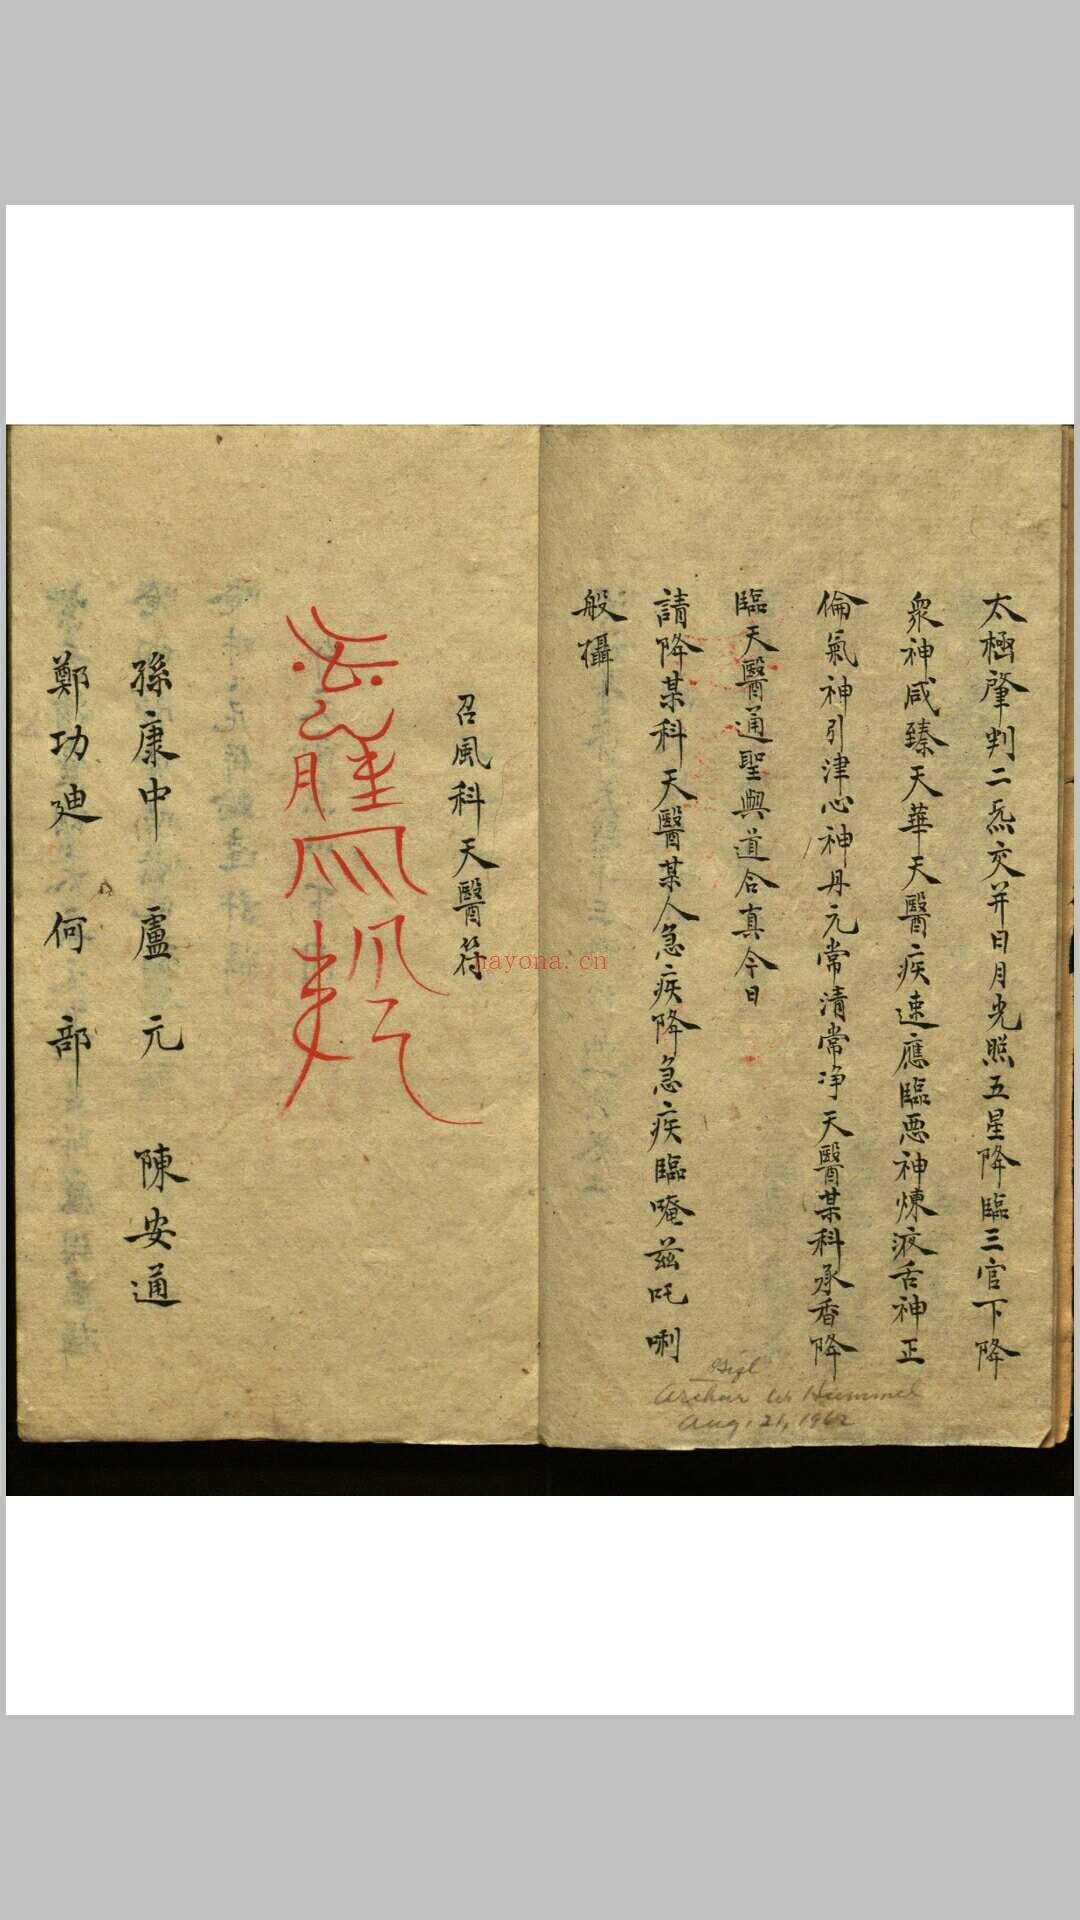 太極肇判二炁交并日月光照五星降臨三官下降
衆神咸臻天華天醫疾速應臨惡神煉液舌神正
倫氣神引津心神丹元常清常净天醫某科承香降
臨天醫通聖與道合真今日
請降某科天醫某人急疾降急疾臨唵茲吒唎
般攝
召風科天醫符
孫康中 盧元 陳安通
鄭功廸 何部
Gift
Arthur W Hummel
Aug. 21, 1962
nayona.cn